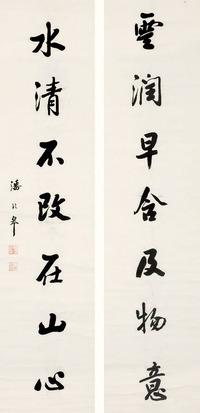 雲润早含及物意
水清不改在山心
潘龄皋